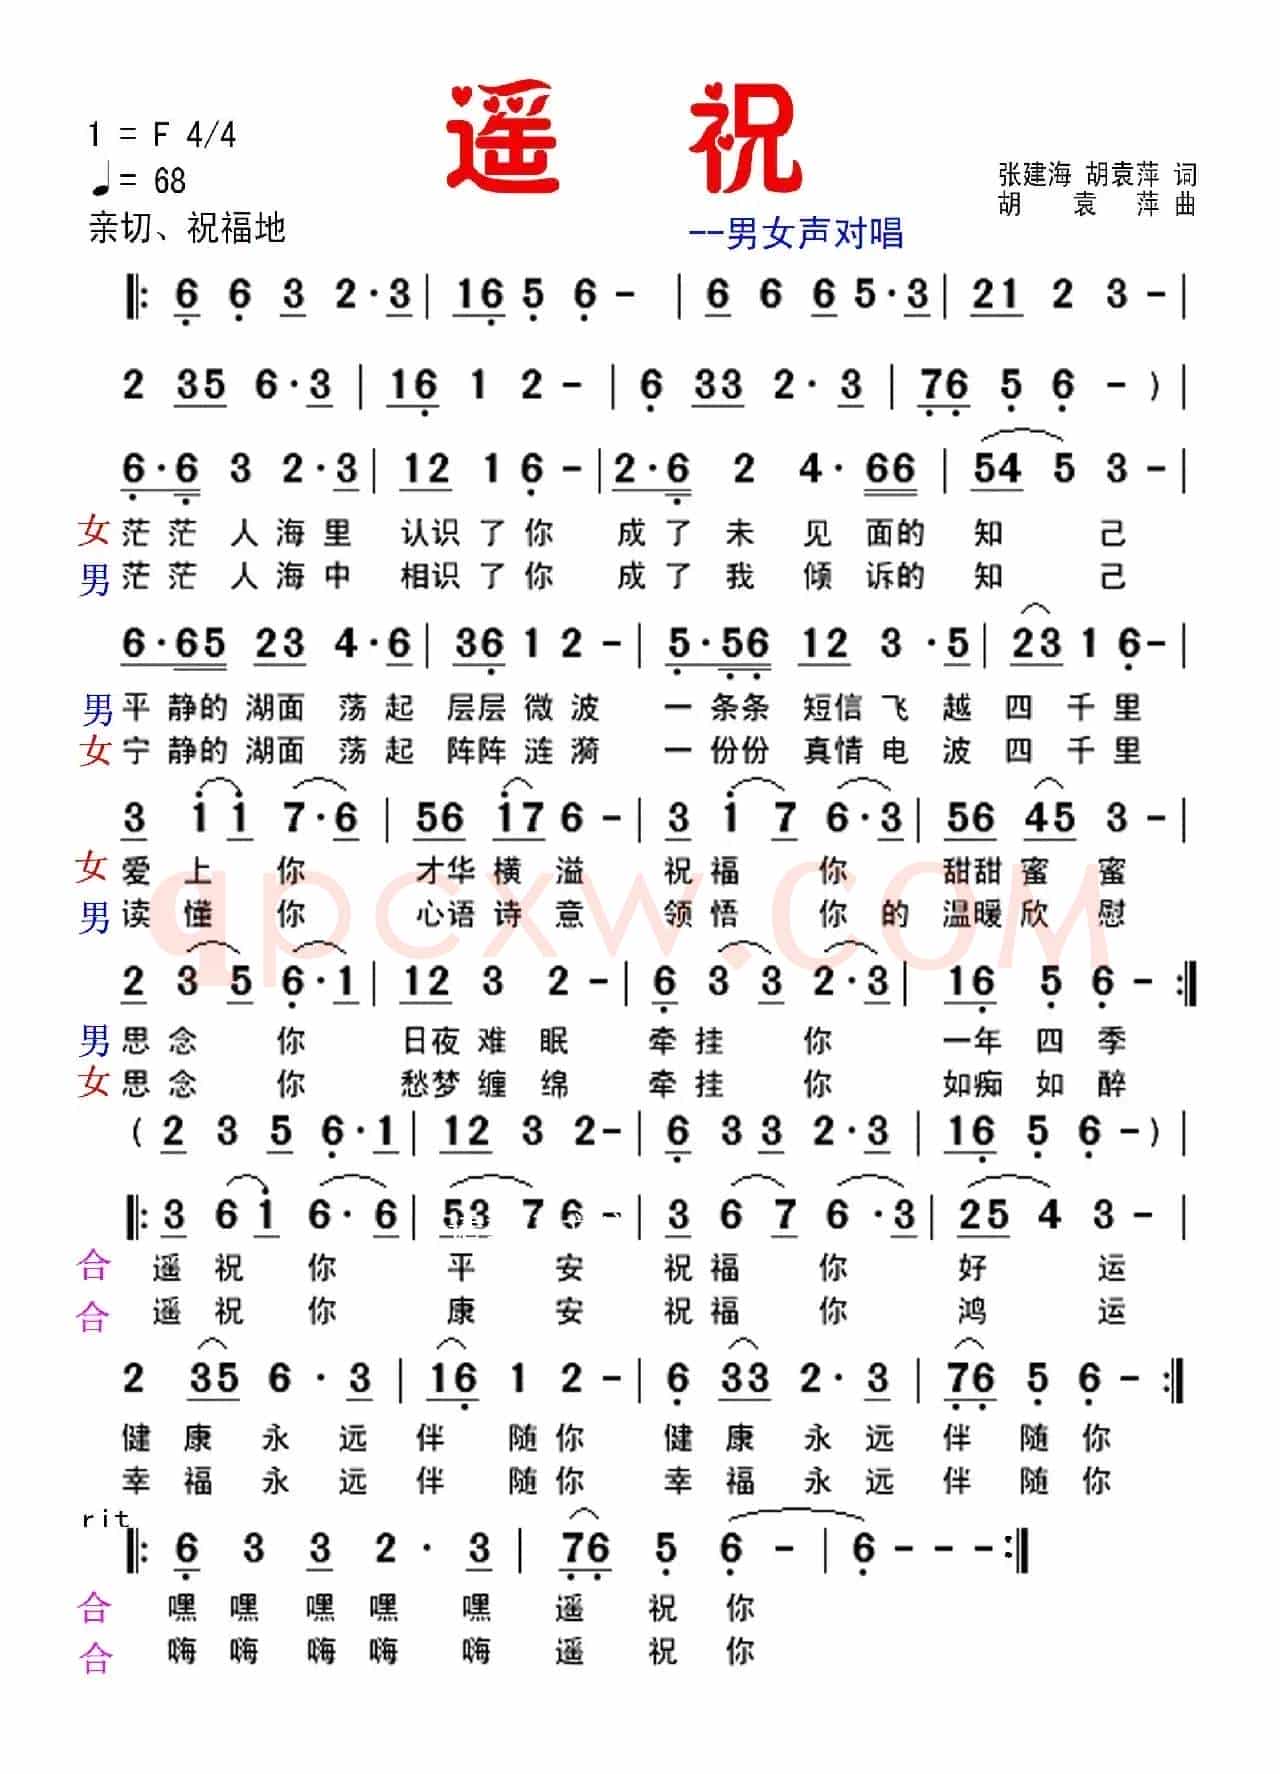 遥 祝
1 = F 4/4
♩= 68
亲切、祝福地
张建海 胡袁萍 词
胡 袁 萍 曲
--男女声对唱
‖: 6 6 3 2·3 | 16 5 6 - | 6 6 6 5·3 | 21 2 3 - |
2 35 6·3 | 16 1 2 - | 6 33 2·3 | 76 5 6 - ) |
6·6 3 2·3 | 12 1 6 - | 2·6 2 4·66 | 54 5 3 - |
女 茫茫 人海里 认识了你 成了未见面的知己
男 茫茫 人海中 相识了你 成了我倾诉的知己
6·65 23 4·6 | 36 1 2 - | 5·56 12 3·5 | 23 1 6 - |
男 平静的湖面荡起 层层微波 一条条 短信飞越四千里
女 宁静的湖面荡起 阵阵涟漪 一份份 真情电波四千里
3 i i 7·6 | 56 i7 6 - | 3 i 7 6·3 | 56 45 3 - |
女 爱上你 才华横溢 祝福你 甜甜蜜蜜
男 读懂你 心语诗意 领悟你的温暖欣慰
qpcxw.com
2 3 5 6·1 | 12 3 2 - | 6 3 3 2·3 | 16 5 6 - :‖
男 思念你 日夜难眠 牵挂你 一年四季
女 思念你 愁梦缠绵 牵挂你 如痴如醉
( 2 3 5 6·1 | 12 3 2 - | 6 3 3 2·3 | 16 5 6 - ) |
‖: 3 6 i 6·6 | 53 7 6 - | 3 6 7 6·3 | 25 4 3 - |
合 遥祝你 平安 祝福你 好运
合 遥祝你 康安 祝福你 鸿运
2 35 6·3 | 16 1 2 - | 6 33 2·3 | 76 5 6 - :‖
健康永远伴随你 健康永远伴随你
幸福永远伴随你 幸福永远伴随你
rit
‖: 6 3 3 2·3 | 76 5 6 - | 6 - - - :‖
合 嘿嘿嘿嘿嘿遥祝你
合 嗨嗨嗨嗨嗨遥祝你